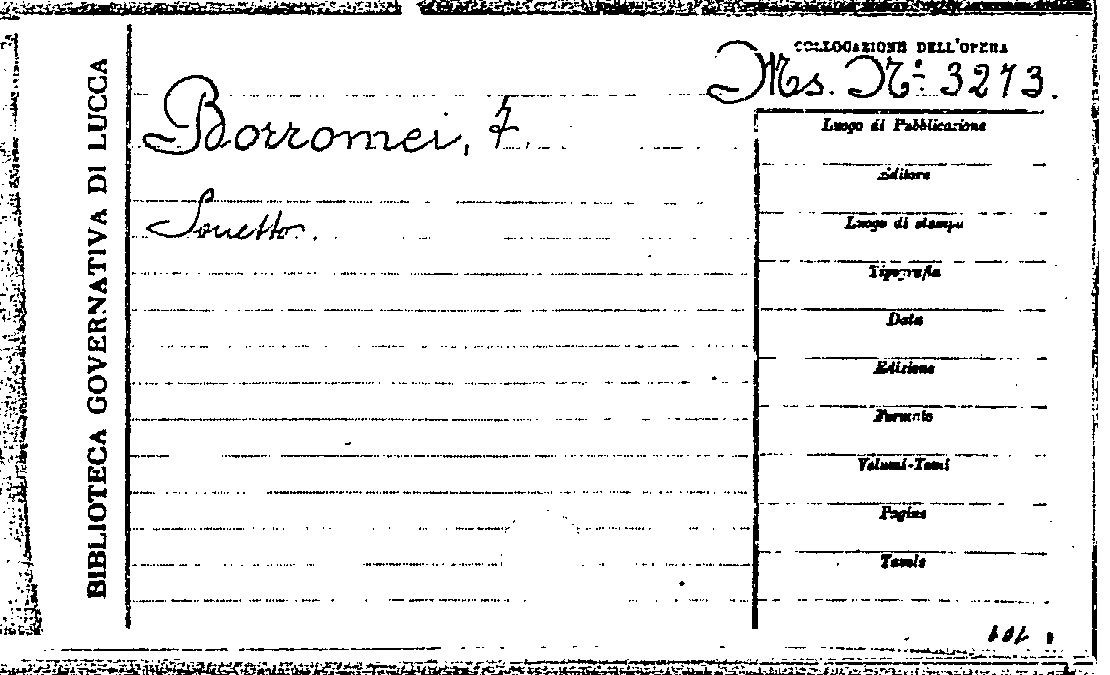 BIBLIOTECA GOVERNATIVA DI LUCCA
COLLOCAZIONE DELL'OPERA
Ms. N.º 3273.
Borromei, F.
Sonetto.
Luogo di Pubblicazione
Editore
Luogo di stampa
Tipografia
Data
Edizione
Formato
Volumi-Tomi
Pagine
Tavole